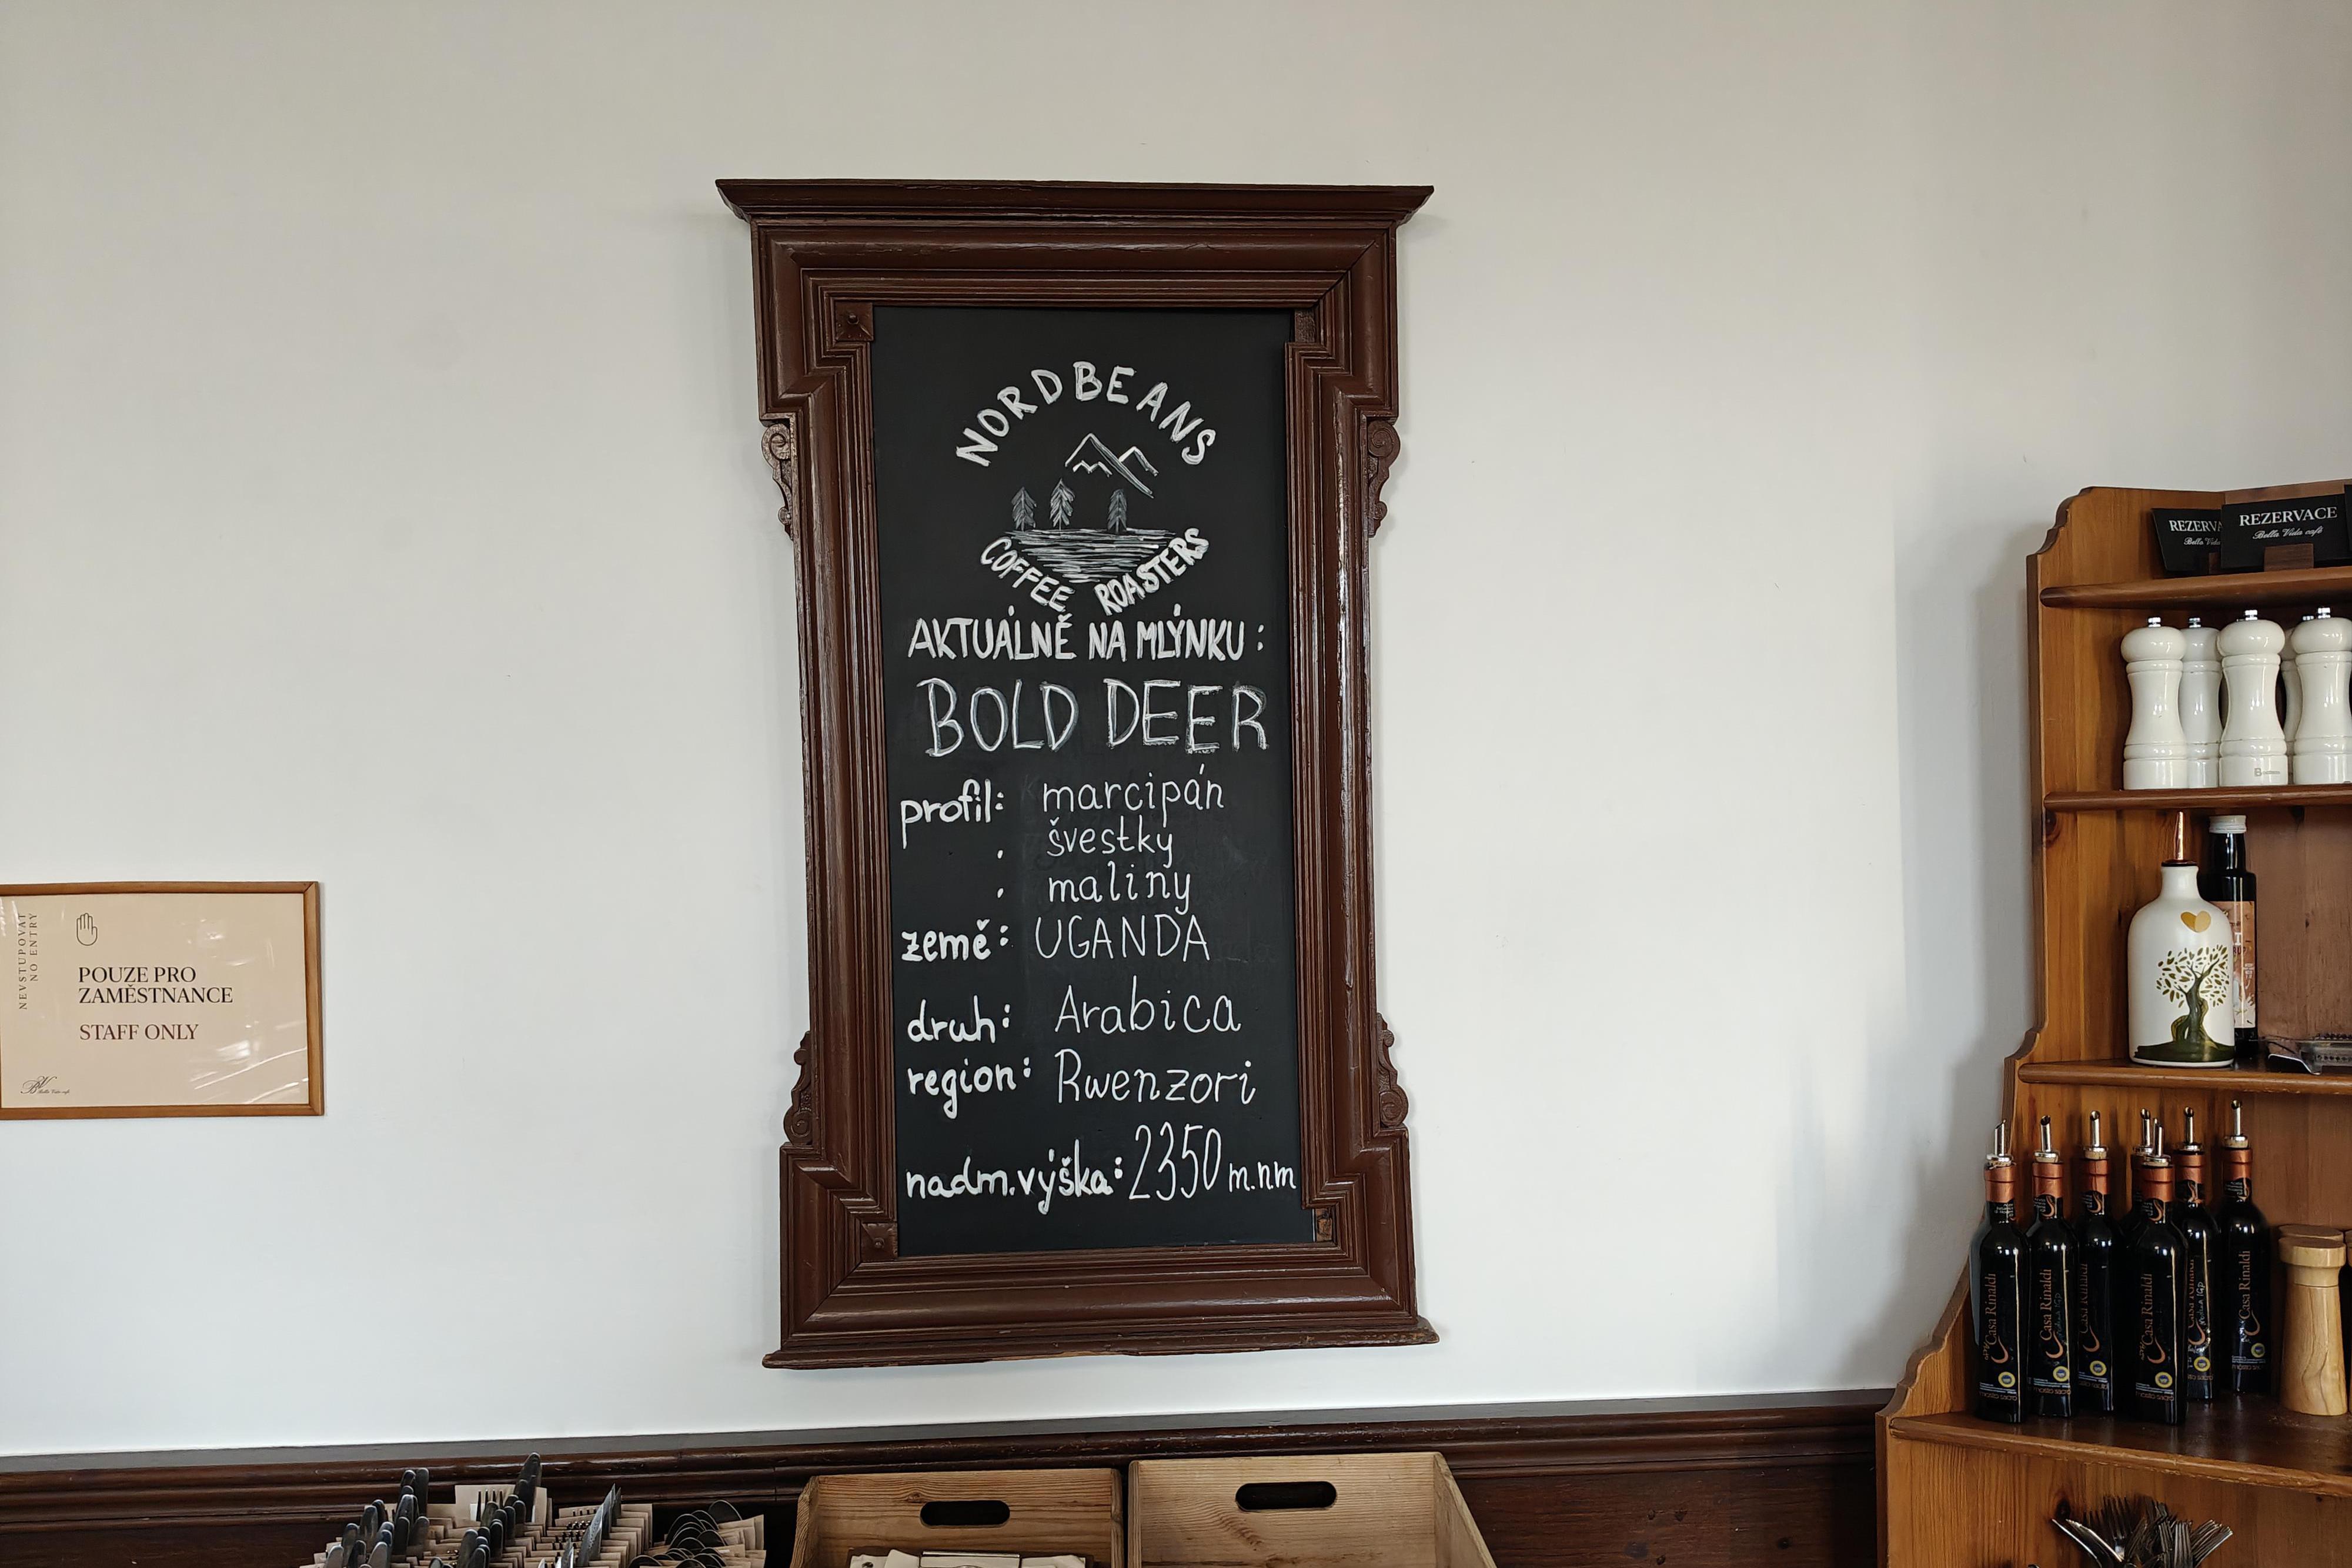 NORDBEANS
COFFEE ROASTERS
AKTUÁLNĚ NA MLÝNKU:
BOLD DEER
profil: marcipán
švestky
maliny
země: UGANDA
druh: Arabica
region: Rwenzori
nadm.výška: 2350 m.nm
NEVSTUPOVAT
NO ENTRY
POUZE PRO
ZAMĚSTNANCE
STAFF ONLY
Bella Vida café
REZERVA
Bella Vida
REZERVACE
Bella Vida café
Casa Rinaldi
Casa Rinaldi
Casa Rinaldi
Casa Rinaldi
Casa Rinaldi
Casa Rinaldi